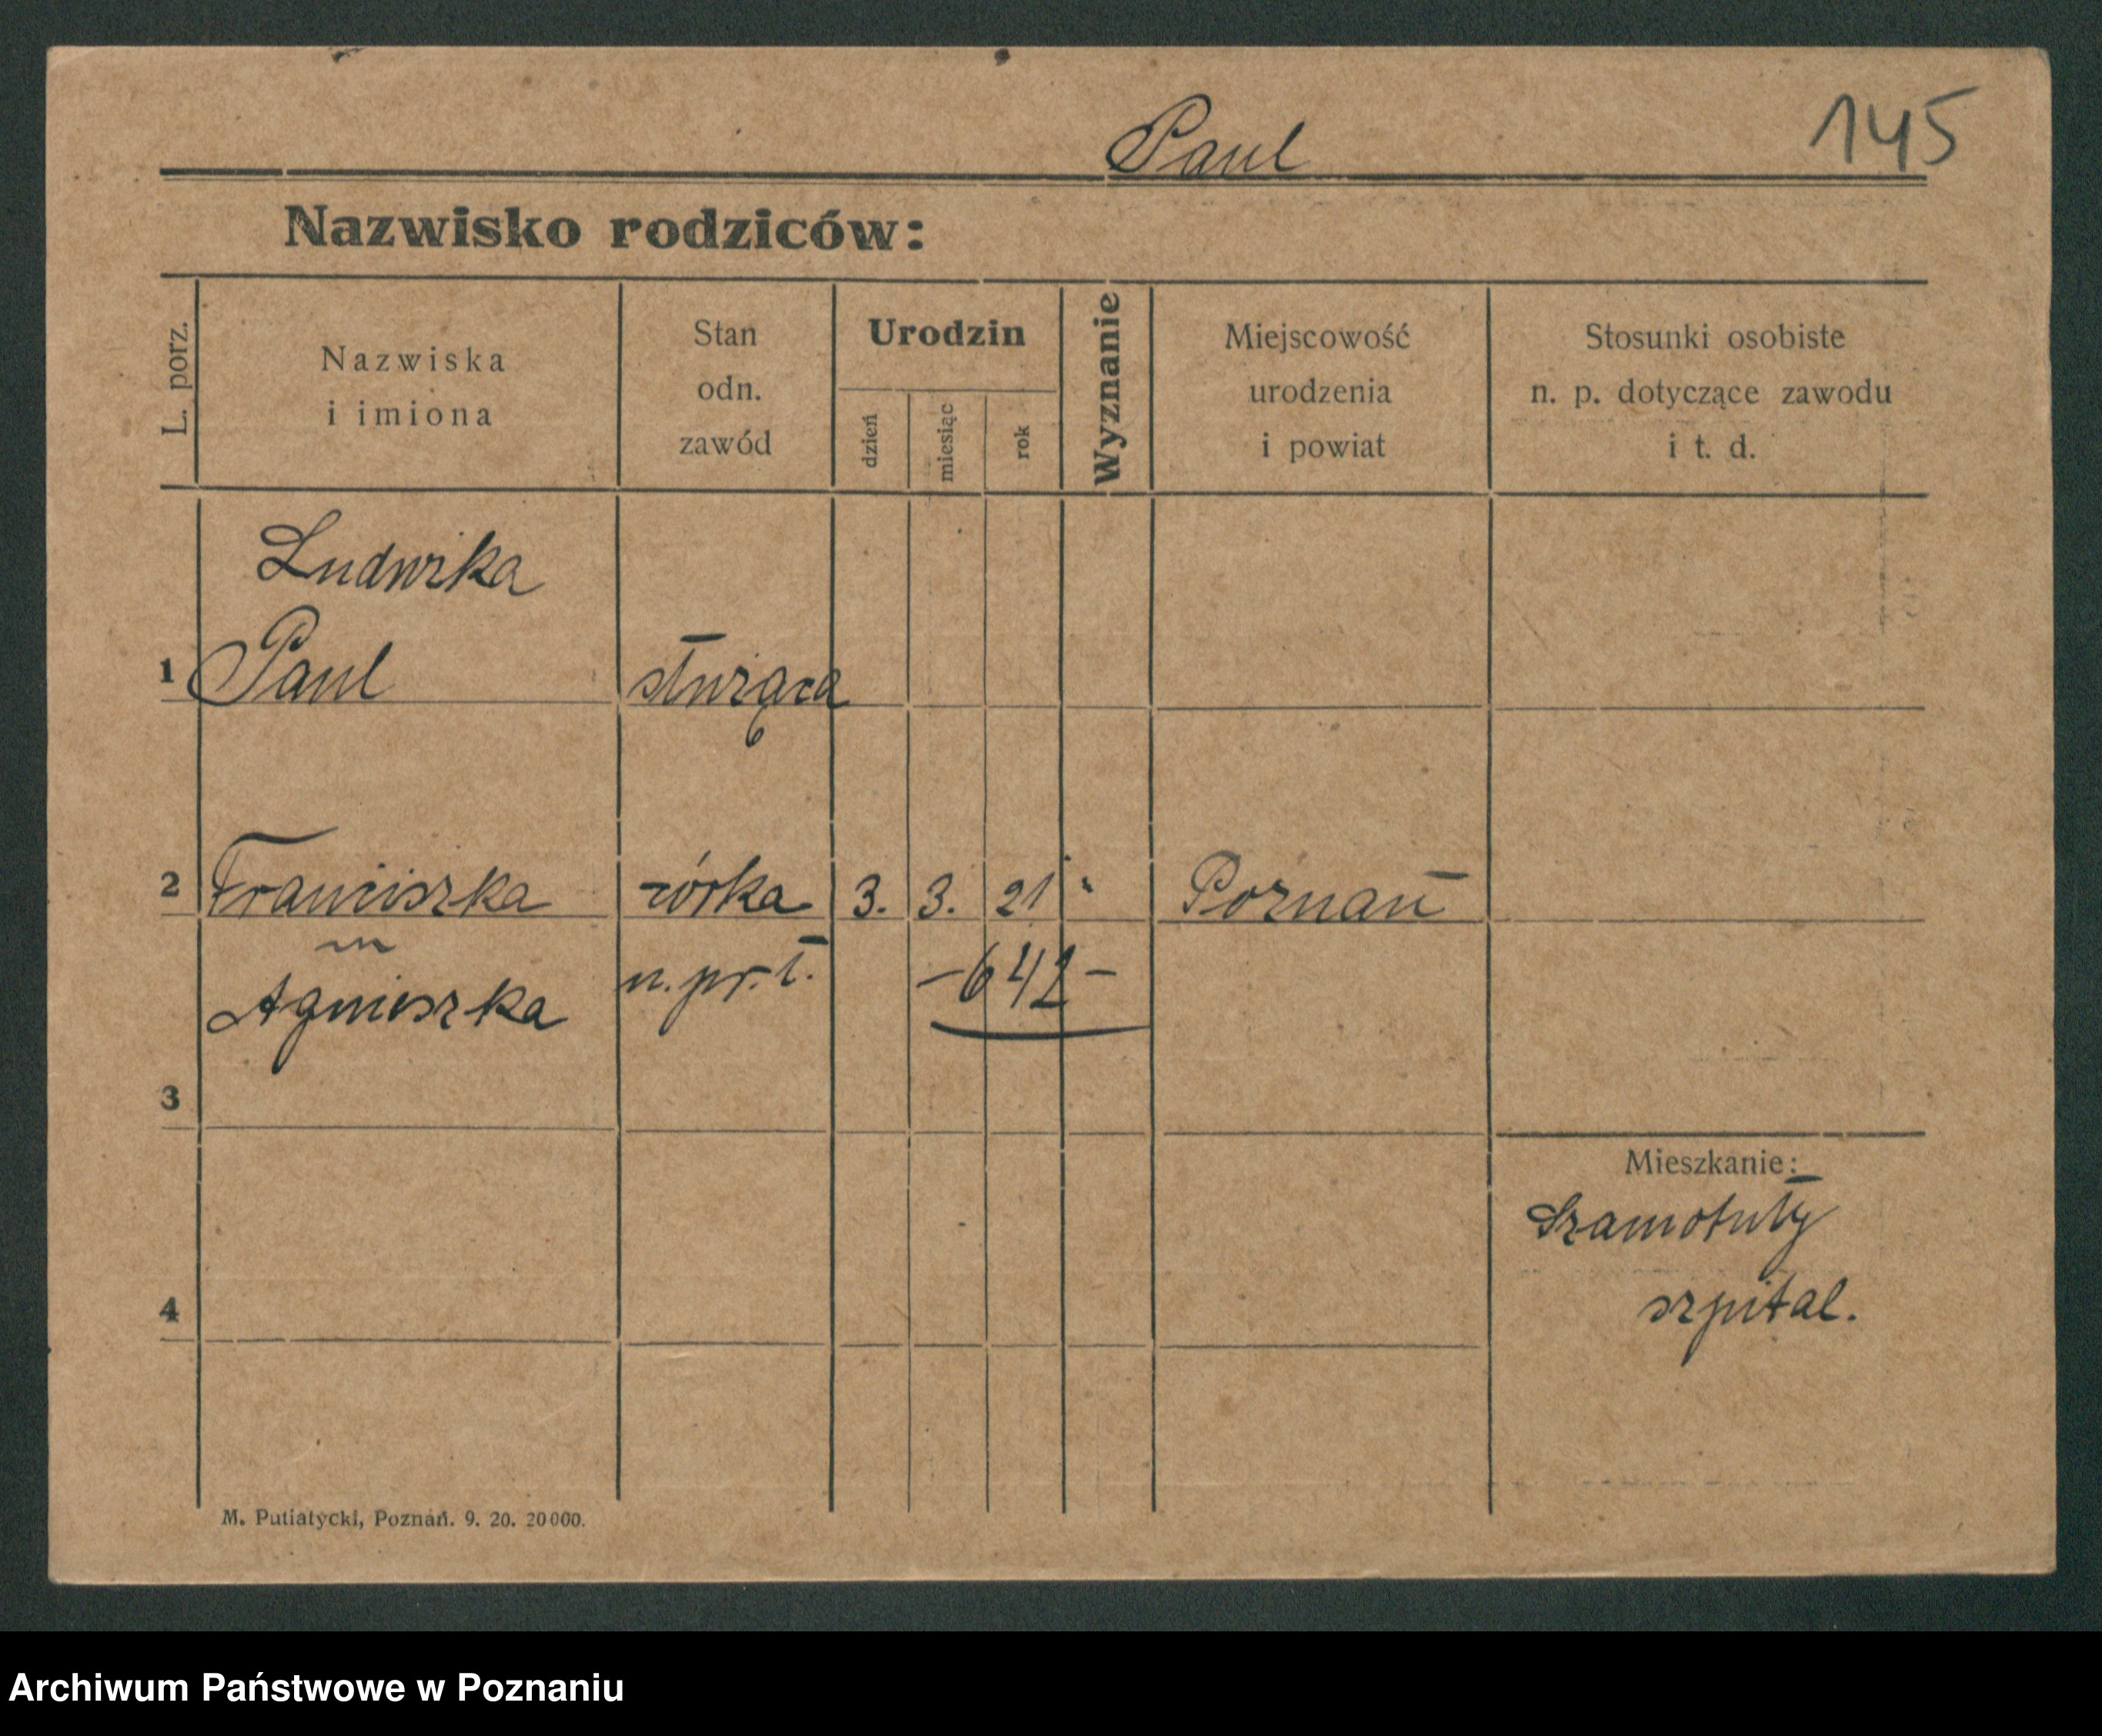 Paul
145
Nazwisko rodziców:
L. porz.
Nazwiska
i imiona
Stan
odn.
zawód
Urodzin
dzień
miesiąc
rok
Wyznanie
Miejscowość
urodzenia
i powiat
Stosunki osobiste
n. p. dotyczące zawodu
i t. d.
Ludwika
1 Paul służąca
2 Franciszka córka 3. 3. 21 " Poznań
Agnieszka n. pr. ł. -642-
3
Mieszkanie:
Szamotuły
szpital.
4
M. Putiatycki, Poznań. 9. 20. 20000.
Archiwum Państwowe w Poznaniu